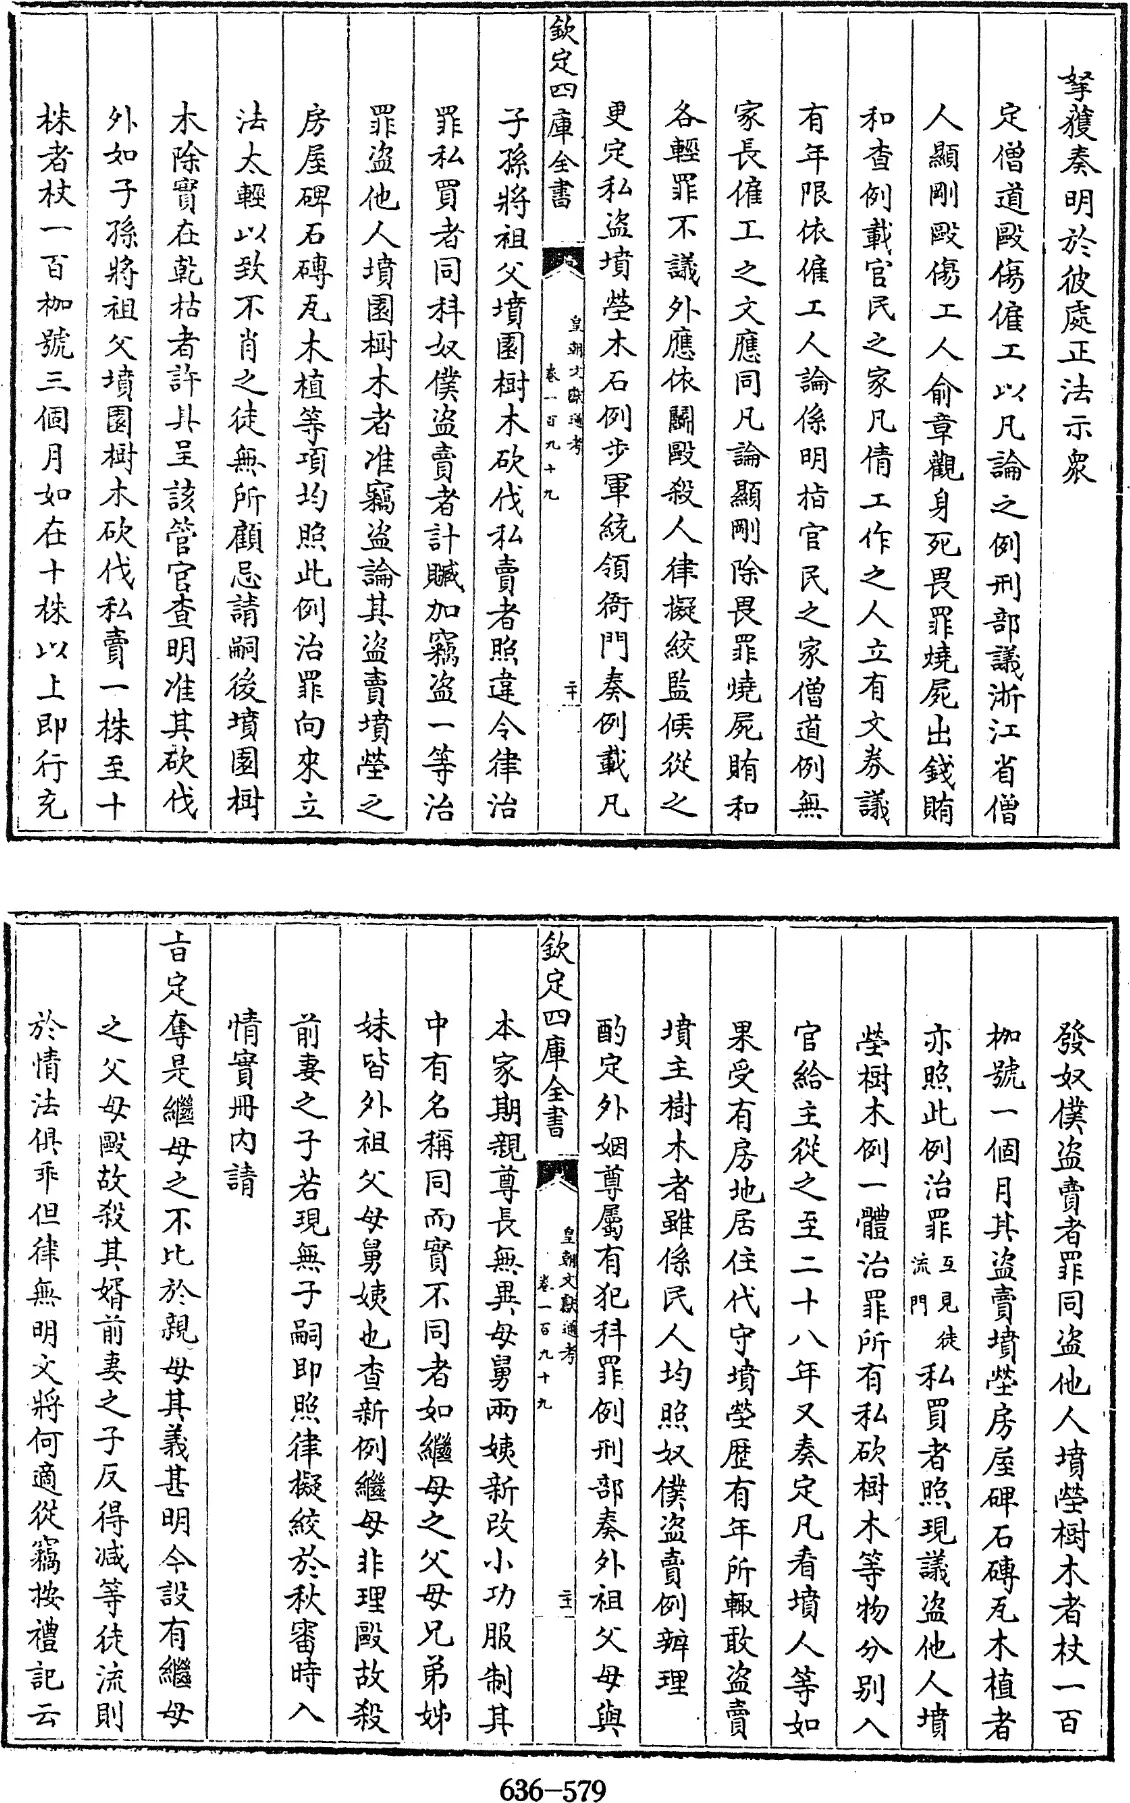 拏獲奏明於彼處正法示衆
定僧道毆傷僱工以凡論之例刑部議浙江省僧
人顯剛毆傷工人俞章觀身死畏罪燒屍出錢賄
和查例載官民之家凡倩工作之人立有文券議
有年限依僱工人論係明指官民之家僧道例無
家長僱工之文應同凡論顯剛除畏罪燒屍賄和
各輕罪不議外應依鬭毆殺人律擬絞監候從之
更定私盗墳塋木石例步軍統領衙門奏例載凡
欽定四庫全書
皇朝文獻通考
卷一百九十九
二十
子孫將祖父墳園樹木砍伐私賣者照違令律治
罪私買者同科奴僕盗賣者計贓加竊盗一等治
罪盗他人墳園樹木者准竊盗論其盗賣墳塋之
房屋碑石磚瓦木植等項均照此例治罪向來立
法太輕以致不肖之徒無所顧忌請嗣後墳園樹
木除實在乾枯者許其呈該管官查明准其砍伐
外如子孫將祖父墳園樹木砍伐私賣一株至十
株者杖一百枷號三個月如在十株以上即行充
發奴僕盗賣者罪同盗他人墳塋樹木者杖一百
枷號一個月其盗賣墳塋房屋碑石磚瓦木植者
亦照此例治罪互見徒流門私買者照現議盗他人墳
塋樹木例一體治罪所有私砍樹木等物分别入
官給主從之至二十八年又奏定凡看墳人等如
果受有房地居住代守墳塋歷有年所輒敢盗賣
墳主樹木者雖係民人均照奴僕盗賣例辦理
酌定外姻尊屬有犯科罪例刑部奏外祖父母與
欽定四庫全書
皇朝文獻通考
卷一百九十九
二十一
本家期親尊長無異母舅兩姨新改小功服制其
中有名稱同而實不同者如繼母之父母兄弟姊
妹皆外祖父母舅姨也查新例繼母非理毆故殺
前妻之子若現無子嗣即照律擬絞於秋審時入
情實冊内請
旨定奪是繼母之不比於親母其義甚明今設有繼母
之父母毆故殺其婿前妻之子反得減等徒流則
於情法俱乖但律無明文將何適從竊按禮記云
636-579